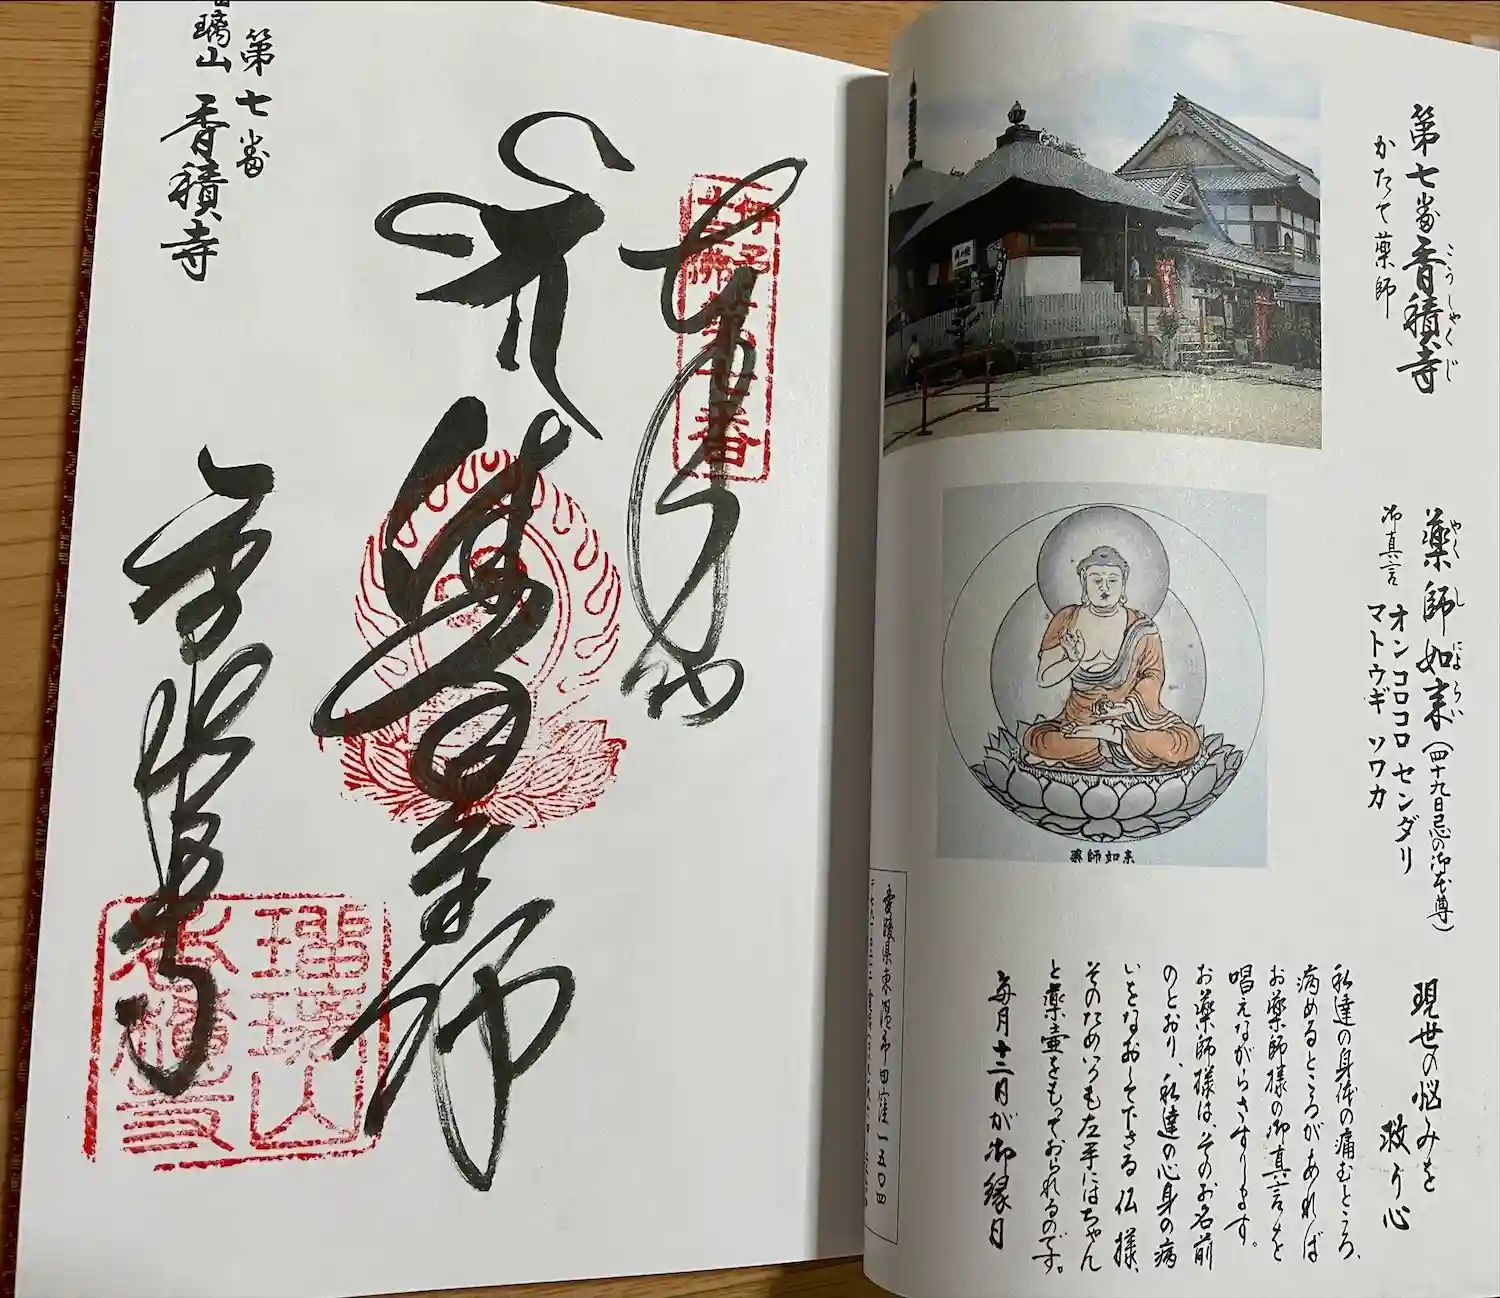 第七番 香積寺
こうしゃくじ
かたて薬師
薬師如来(四十九日忌の御本尊)
やくしにょらい
御真言 オンコロコロ センダリ
マトウギ ソワカ
現世の悩みを
救う心
私達の身体の痛むところ、
病めるところがあれば
お薬師様の御真言を
唱えながらさすります。
お薬師様は、そのお名前
のとおり、私達の心身の病
いをなおして下さる仏様、
そのためいつも左手にはちゃん
と薬壷をもっておられるのです。
毎月十二日が御縁日
薬師如来
愛媛県東温市田窪一五〇四
伊予
十三佛第七番
奉納
薬師
香積寺
瑠璃山
香積寺
第七番
璃山 香積寺